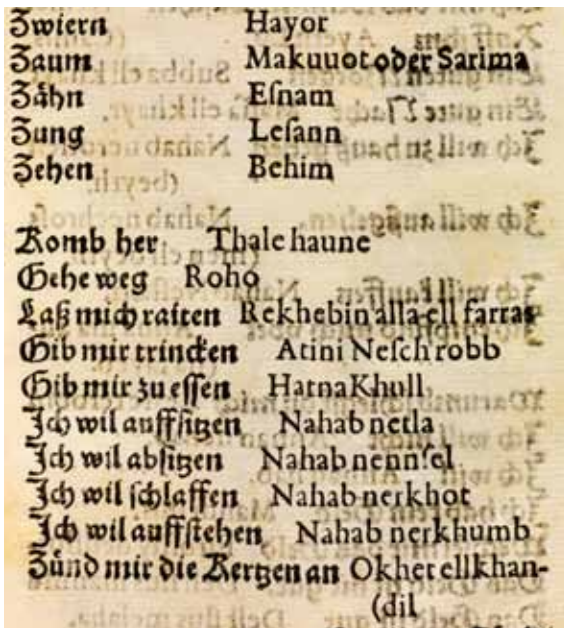 Zwiern Hayor
Zaum Makuuot oder Sarima
Zähn Eſnam
Zung Leſann
Zehen Behim
Komb her Thale haune
Gehe weg Roho
Laß mich raiten Rekhebin alla ell farras
Gib mir trincken Atini Neſch robb
Gib mir zu eſſen Hatna Khull
Ich wil auffſitzen Nahab netla
Ich wil abſitzen Nahab nennſel
Ich wil ſchlaffen Nahab nerkhot
Ich wil auffſtehen Nahab nerkhumb
Zünd mir die Kertzen an Okhet ell khan-
(dil